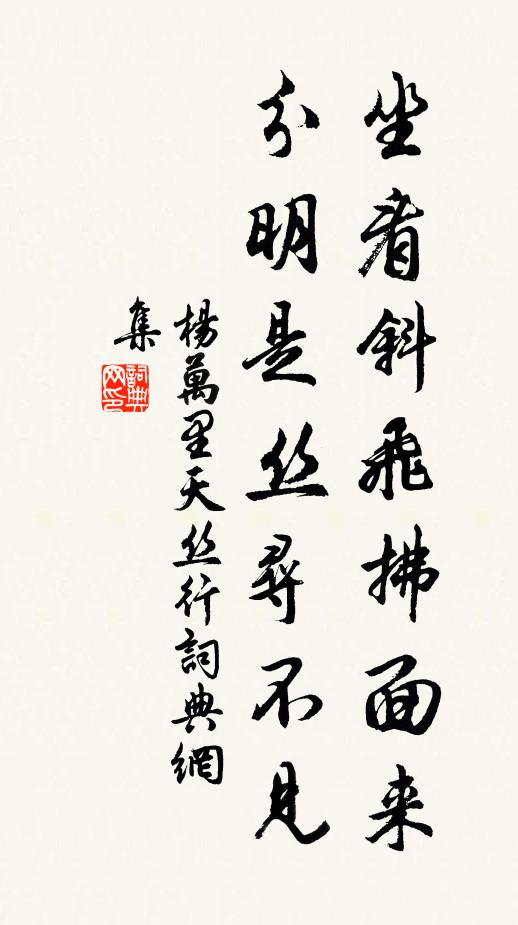 坐看斜飛拂面来
分明是丝尋不見
楊萬里天丝行詞典網
集
詞典网印